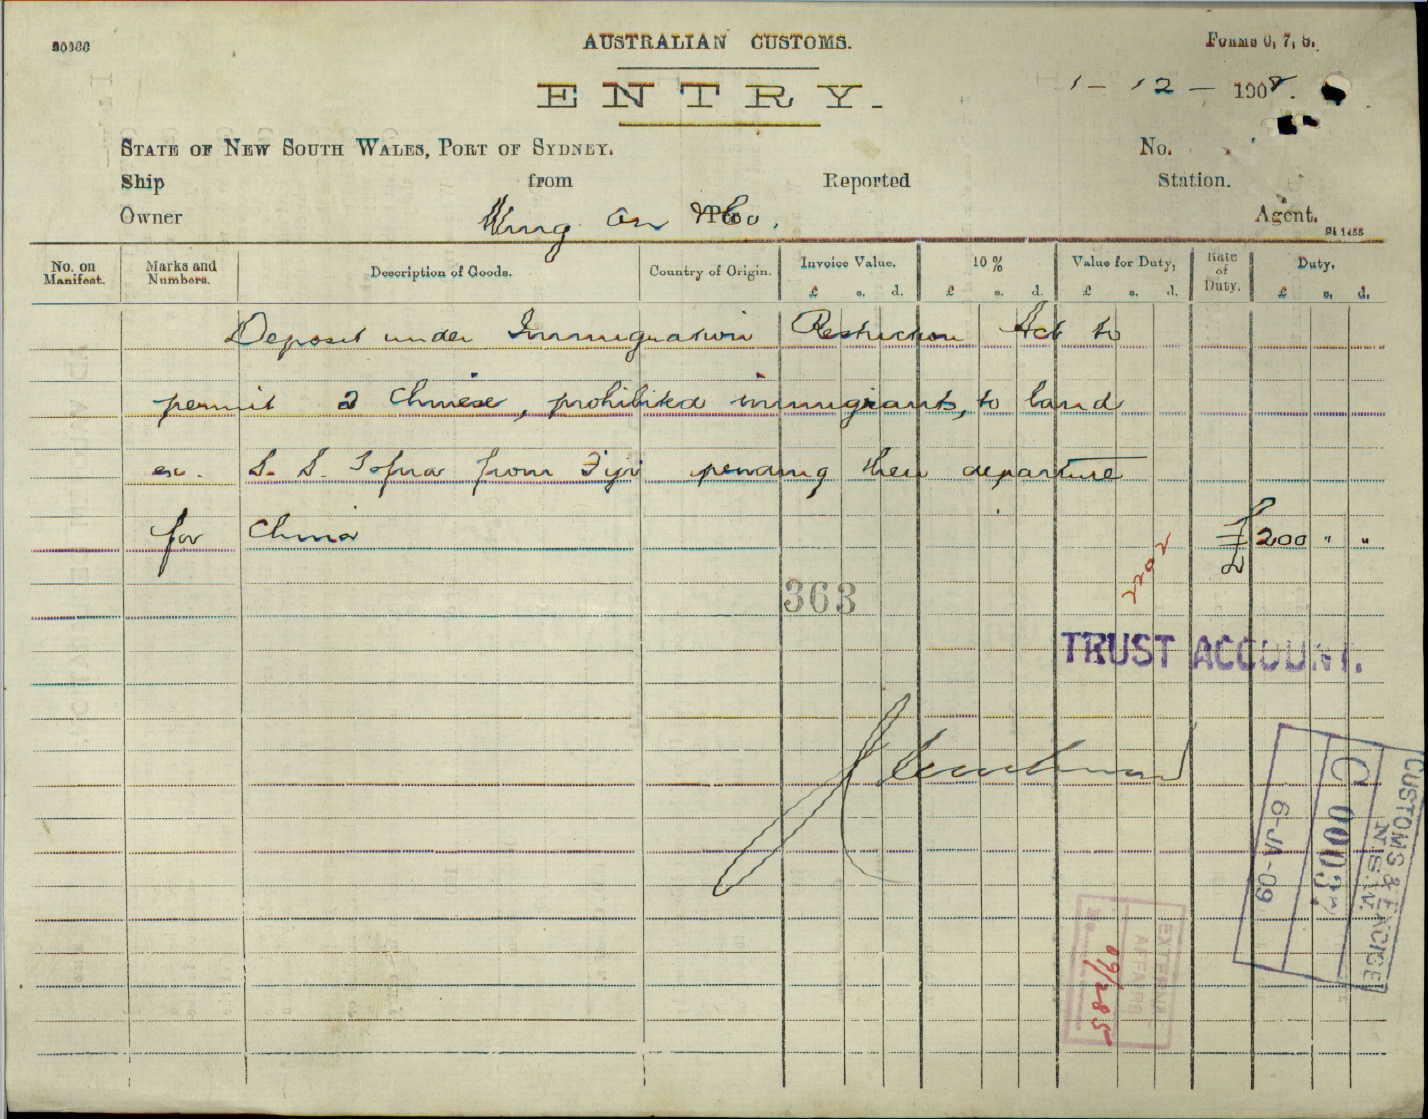 AUSTRALIAN CUSTOMS.
Forms 6, 7, 8.
ENTRY.
1 - 12 - 1908.
STATE OF NEW SOUTH WALES, PORT OF SYDNEY.
No.
Ship from Reported Station.
Owner Wing On & Co. Agent.
No. on Manifest.
Marks and Numbers.
Description of Goods.
Country of Origin.
Invoice Value.
£ s. d.
10 %
£ s. d.
Value for Duty,
£ s. d.
Rate of Duty.
Duty.
£ s. d.
Deposit under Immigration Restriction Act to
permit 2 Chinese, prohibited immigrants, to land
ex. S. S. Tofua from Fiji pending their departure
for China £200 " "
2202
363
TRUST ACCOUNT.
CUSTOMS & EXCISE
N.S.W.
6-JA-09
EXTERNAL
AFFAIRS
No. 09/285